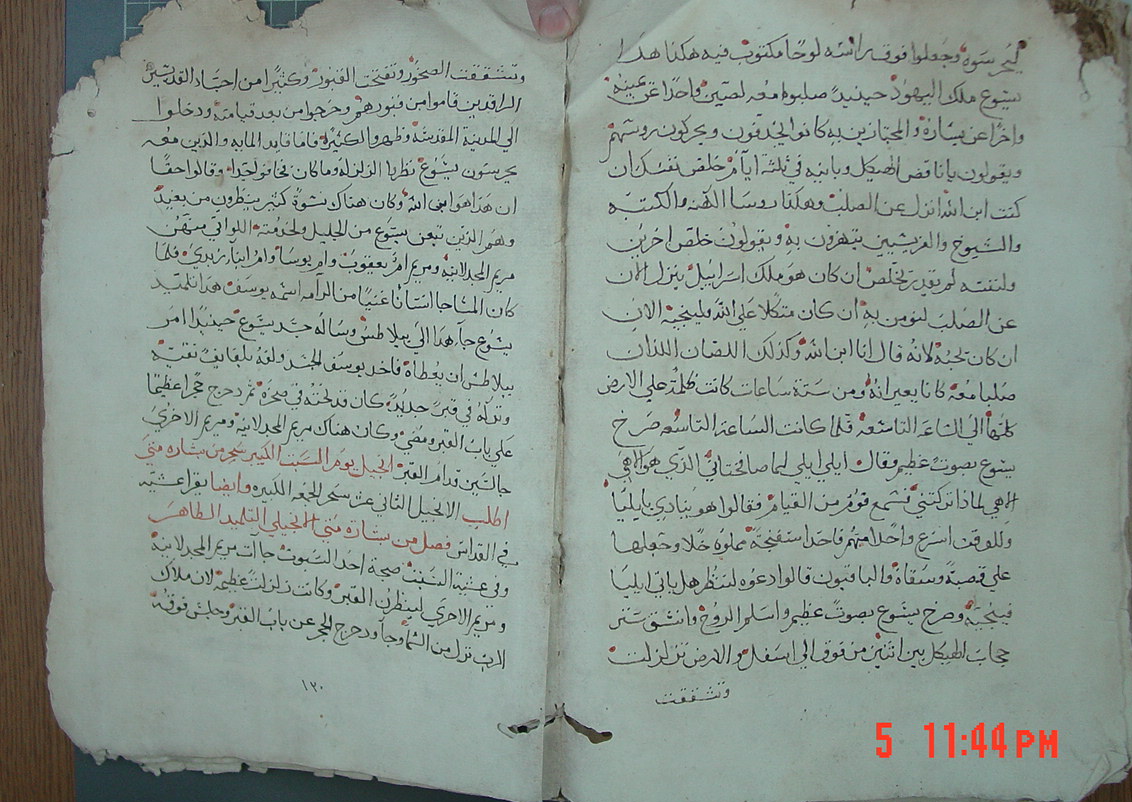 ليحرسوه وجعلوا فوق راسه لوحا مكتوب فيه هكذا هذا
يسوع ملك اليهود حينيد صلبوه معه لصين واحدا عن يمينه
واخرا عن يساره والمجتازين به كانوا يجدفون ويحركون روسهم
ويقولون يا ناقض الهيكل وبانيه في ثلثة ايام خلص نفسك ان
كنت ابن الله انزل عن الصلب وهكذا روسا الكهنه والكتبه
والشيوخ والفريسيين يتهزون به ويقولون خلص اخرين
ولنفسه لم يقدر يخلص ان كان هو ملك اسراييل ينزل الان
عن الصلب لنومن به ان كان متكلا علي الله فلينجيه الان
ان كان يحبه لانه قال انا ابن الله وكذلك اللصان اللذان
صلبا معه كانا يعيرانه ومن ستة ساعات كانت ظلمة علي الارض
كلها الي الساعه التاسعه فلما كانت الساعة التاسعه صرخ
يسوع بصوت عظيم وقال ايلي ايلي لما صافختاني الذي هو الاهي
الاهي لماذا تركتني فسمع قوم من القيام فقالوا هو ينادي يا ايليا
وللوقت اسرع واحدا منهم فاخد اسفنجة مملوه خلا وجعلها
علي قصبة وسقاه والباقيون قالوا دعوه لننظر هل ياتي ايليا
فينجيه وصرخ يسوع بصوت عظيم واسلم الروح وانشق ستر
حجاب الهيكل بين اثنين من فوق الي اسفل والارض تزلزلت
وتشققت
وتشققت الصخور وتفتحت القبور وكثيرا من اجساد القديسين
الراقدين قاموا من قبورهم وخرجوا من بعد قيامته ودخلوا
الي المدينة المقدسة وظهروا لكثيره فاما قايد المايه والذين معه
يحرسون يسوع نظروا الزلزله وما كان فخافوا جدا وقالوا حقا
ان هذا هو ابن الله وكان هناك نسوة كثير ينظرون من بعيد
وهم الذين تبعن يسوع من الجليل ولخدمته اللواتي منهن
مريم المجدلانيه ومريم ام يعقوب وام يوسا وام ابنا زبدي فلما
كان المسا جا انسانا غنيا من الرامه اسمه يوسف هدا تلميد
يسوع جا هدا الي بيلاطس وساله جسد يسوع حينيدا امر
بيلاطس ان يعطاه فاخد يوسف الجسد ولفه بلفايف نقيه
وتركه في قبر جديد كان قد نحته في صخره ثم دحرج حجرا عظيما
علي باب القبر ومضي وكان هناك مريم المجدلانيه ومريم الاخري
جالستين قدام القبر انجيل يوم السبت الكبير سحر من بشاره متي
اطلب الانجيل الثاني عشر سحر الجمعه الكبيره وايضا يقرا عشيه
في القداس فصل من بشاره متي الانجيلي التلميد الطاهر
وفي عشية السبت صبحة احد السبوت جاات مريم المجدلانيه
ومريم الاخري لينظرن القبر وكانت زلزلت عظيمه لان ملاك
الرب نزل من السما وجا ودحرج الحجر عن باب القبر وجلس فوقه
١٢٠
5 11:44 PM